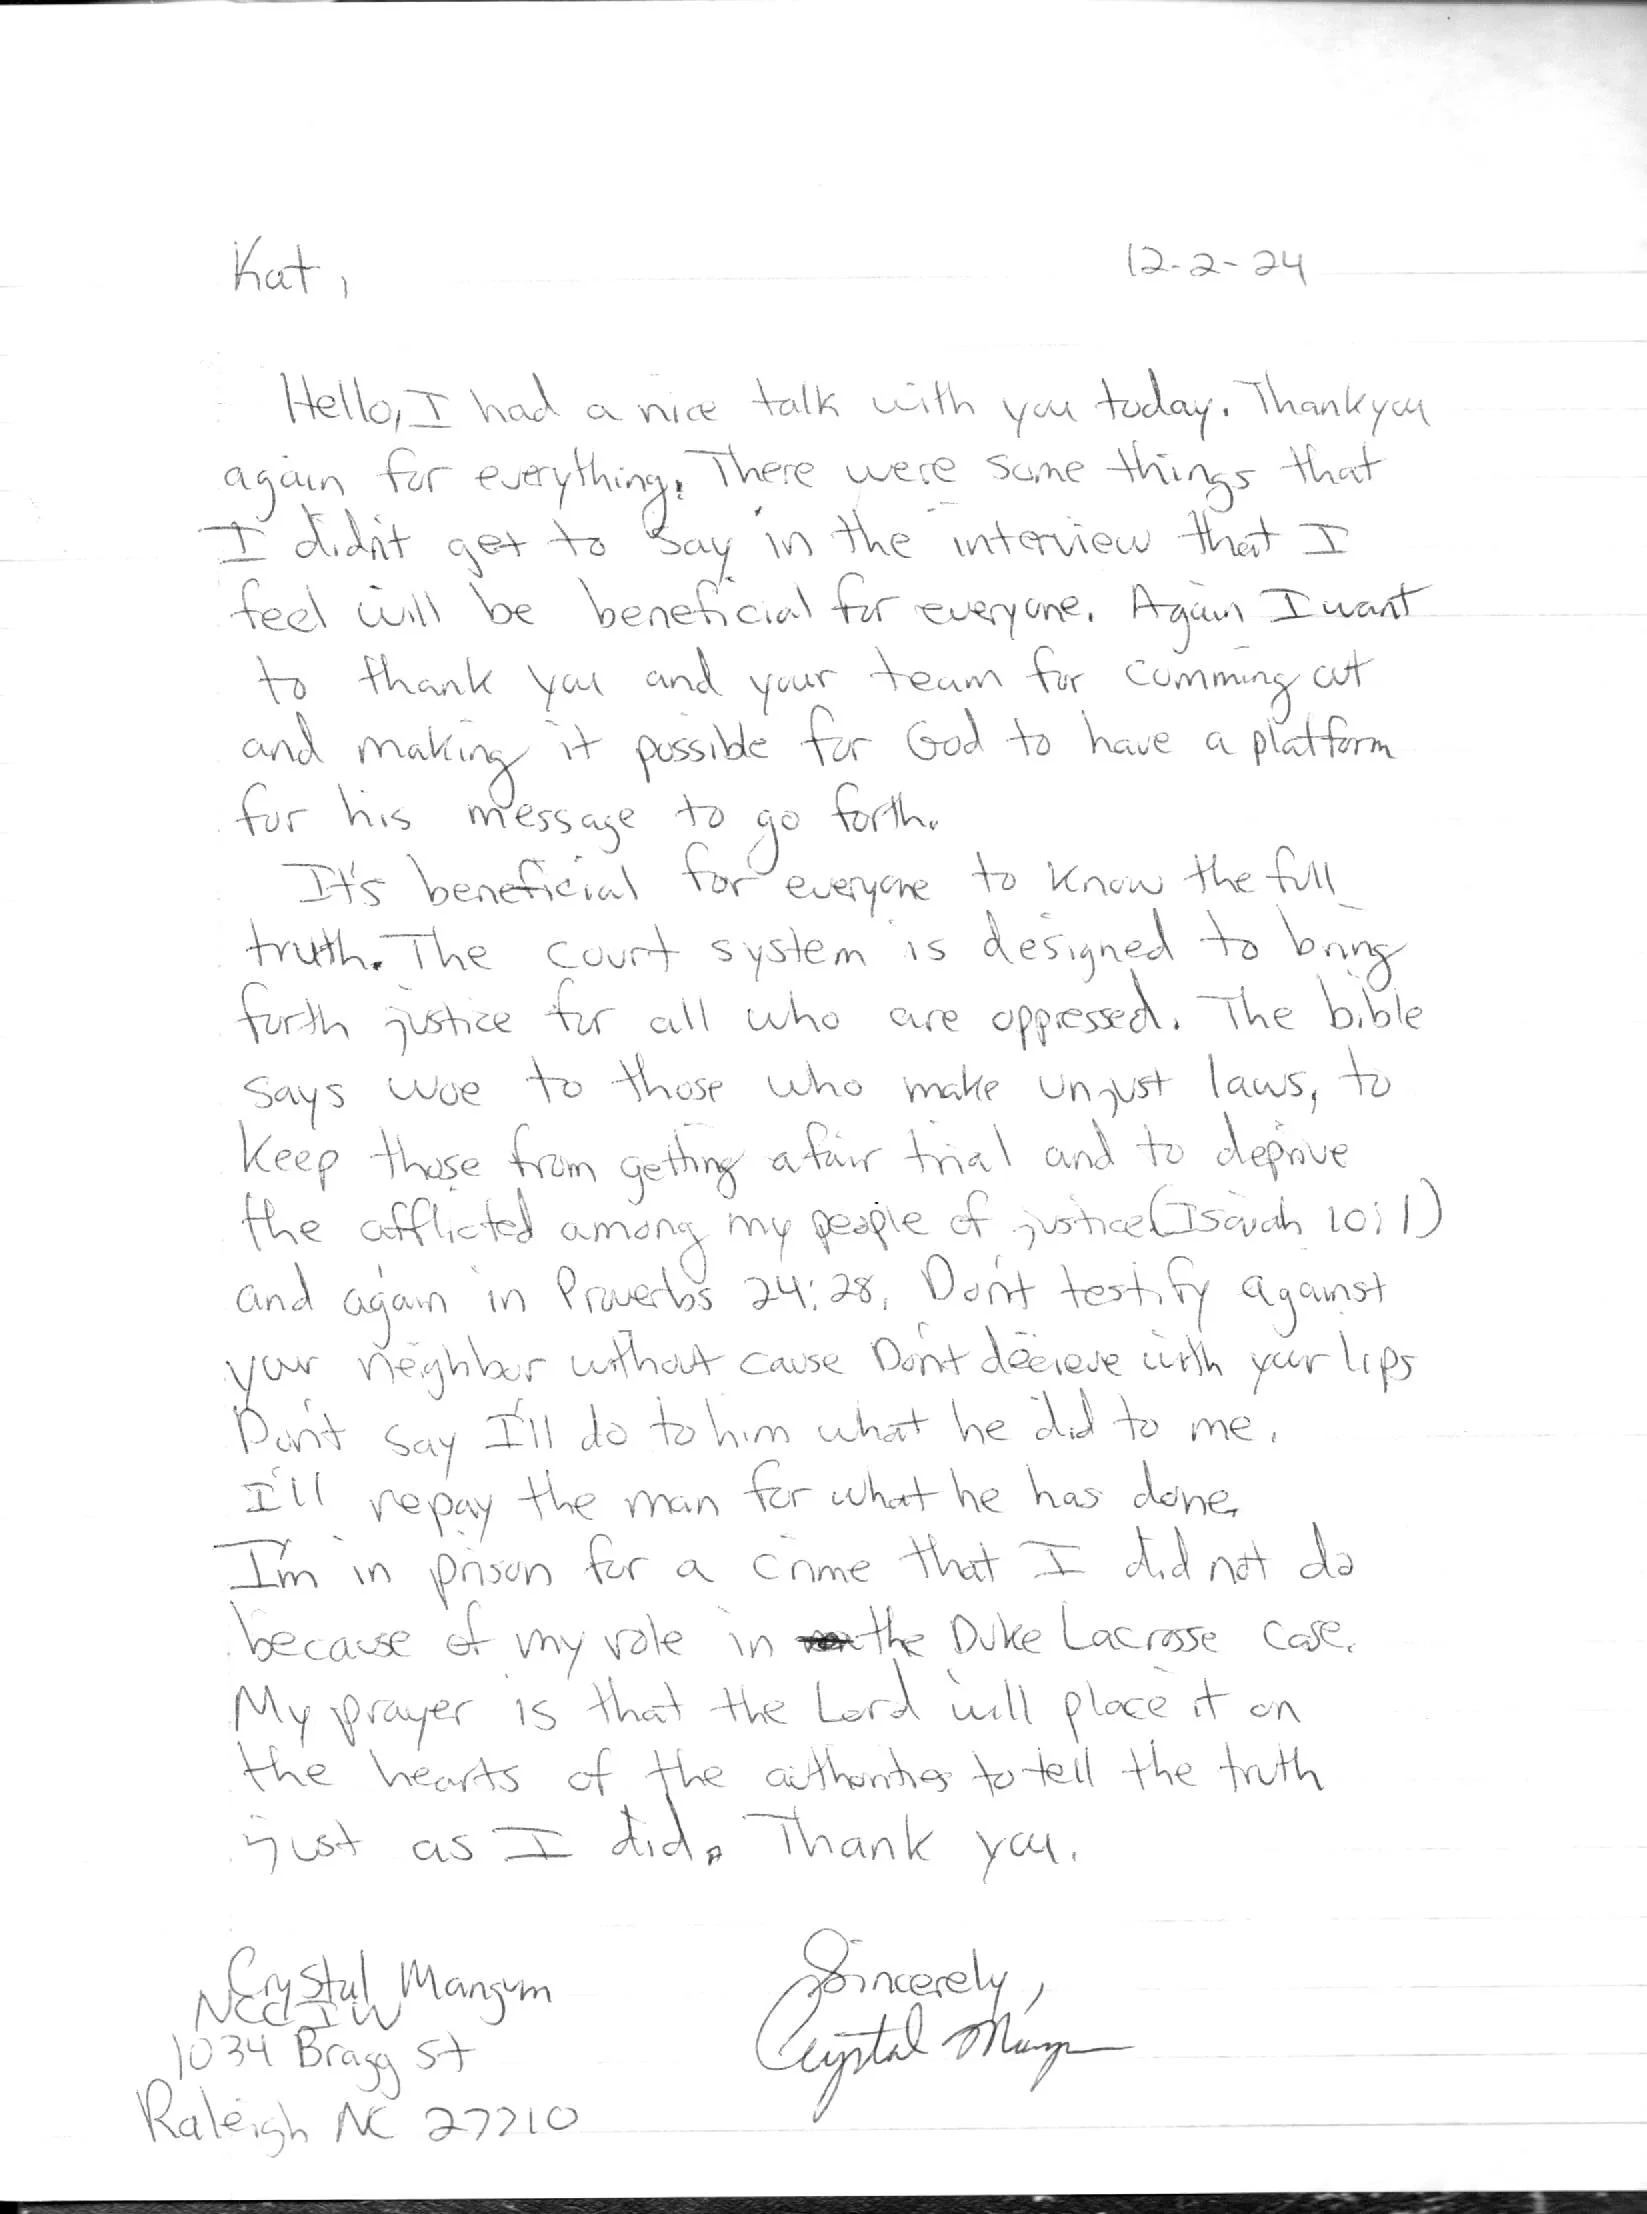 Kat,
12-2-24
Hello, I had a nice talk with you today. Thankyou
again for everything. There were some things that
I didn't get to say in the interview that I
feel will be beneficial for everyone. Again I want
to thank you and your team for comming out
and making it possible for God to have a platform
for his message to go forth.
It's beneficial for everyone to know the full
truth. The court system is designed to bring
forth justice for all who are oppressed. The bible
says woe to those who make unjust laws, to
keep those from getting a fair trial and to deprive
the afflicted among my people of justice (Isaiah 10:1)
and again in Proverbs 24:28, Don't testify against
your neighbor without cause Don't decieve with your lips
Don't say I'll do to him what he did to me.
I'll repay the man for what he has done.
I'm in prison for a crime that I did not do
because of my role in the Duke Lacrosse case.
My prayer is that the Lord will place it on
the hearts of the authorities to tell the truth
just as I did. Thank you.
Sincerely,
Crystal Mangum
Crystal Mangum
NCCIW
1034 Bragg St
Raleigh NC 27710